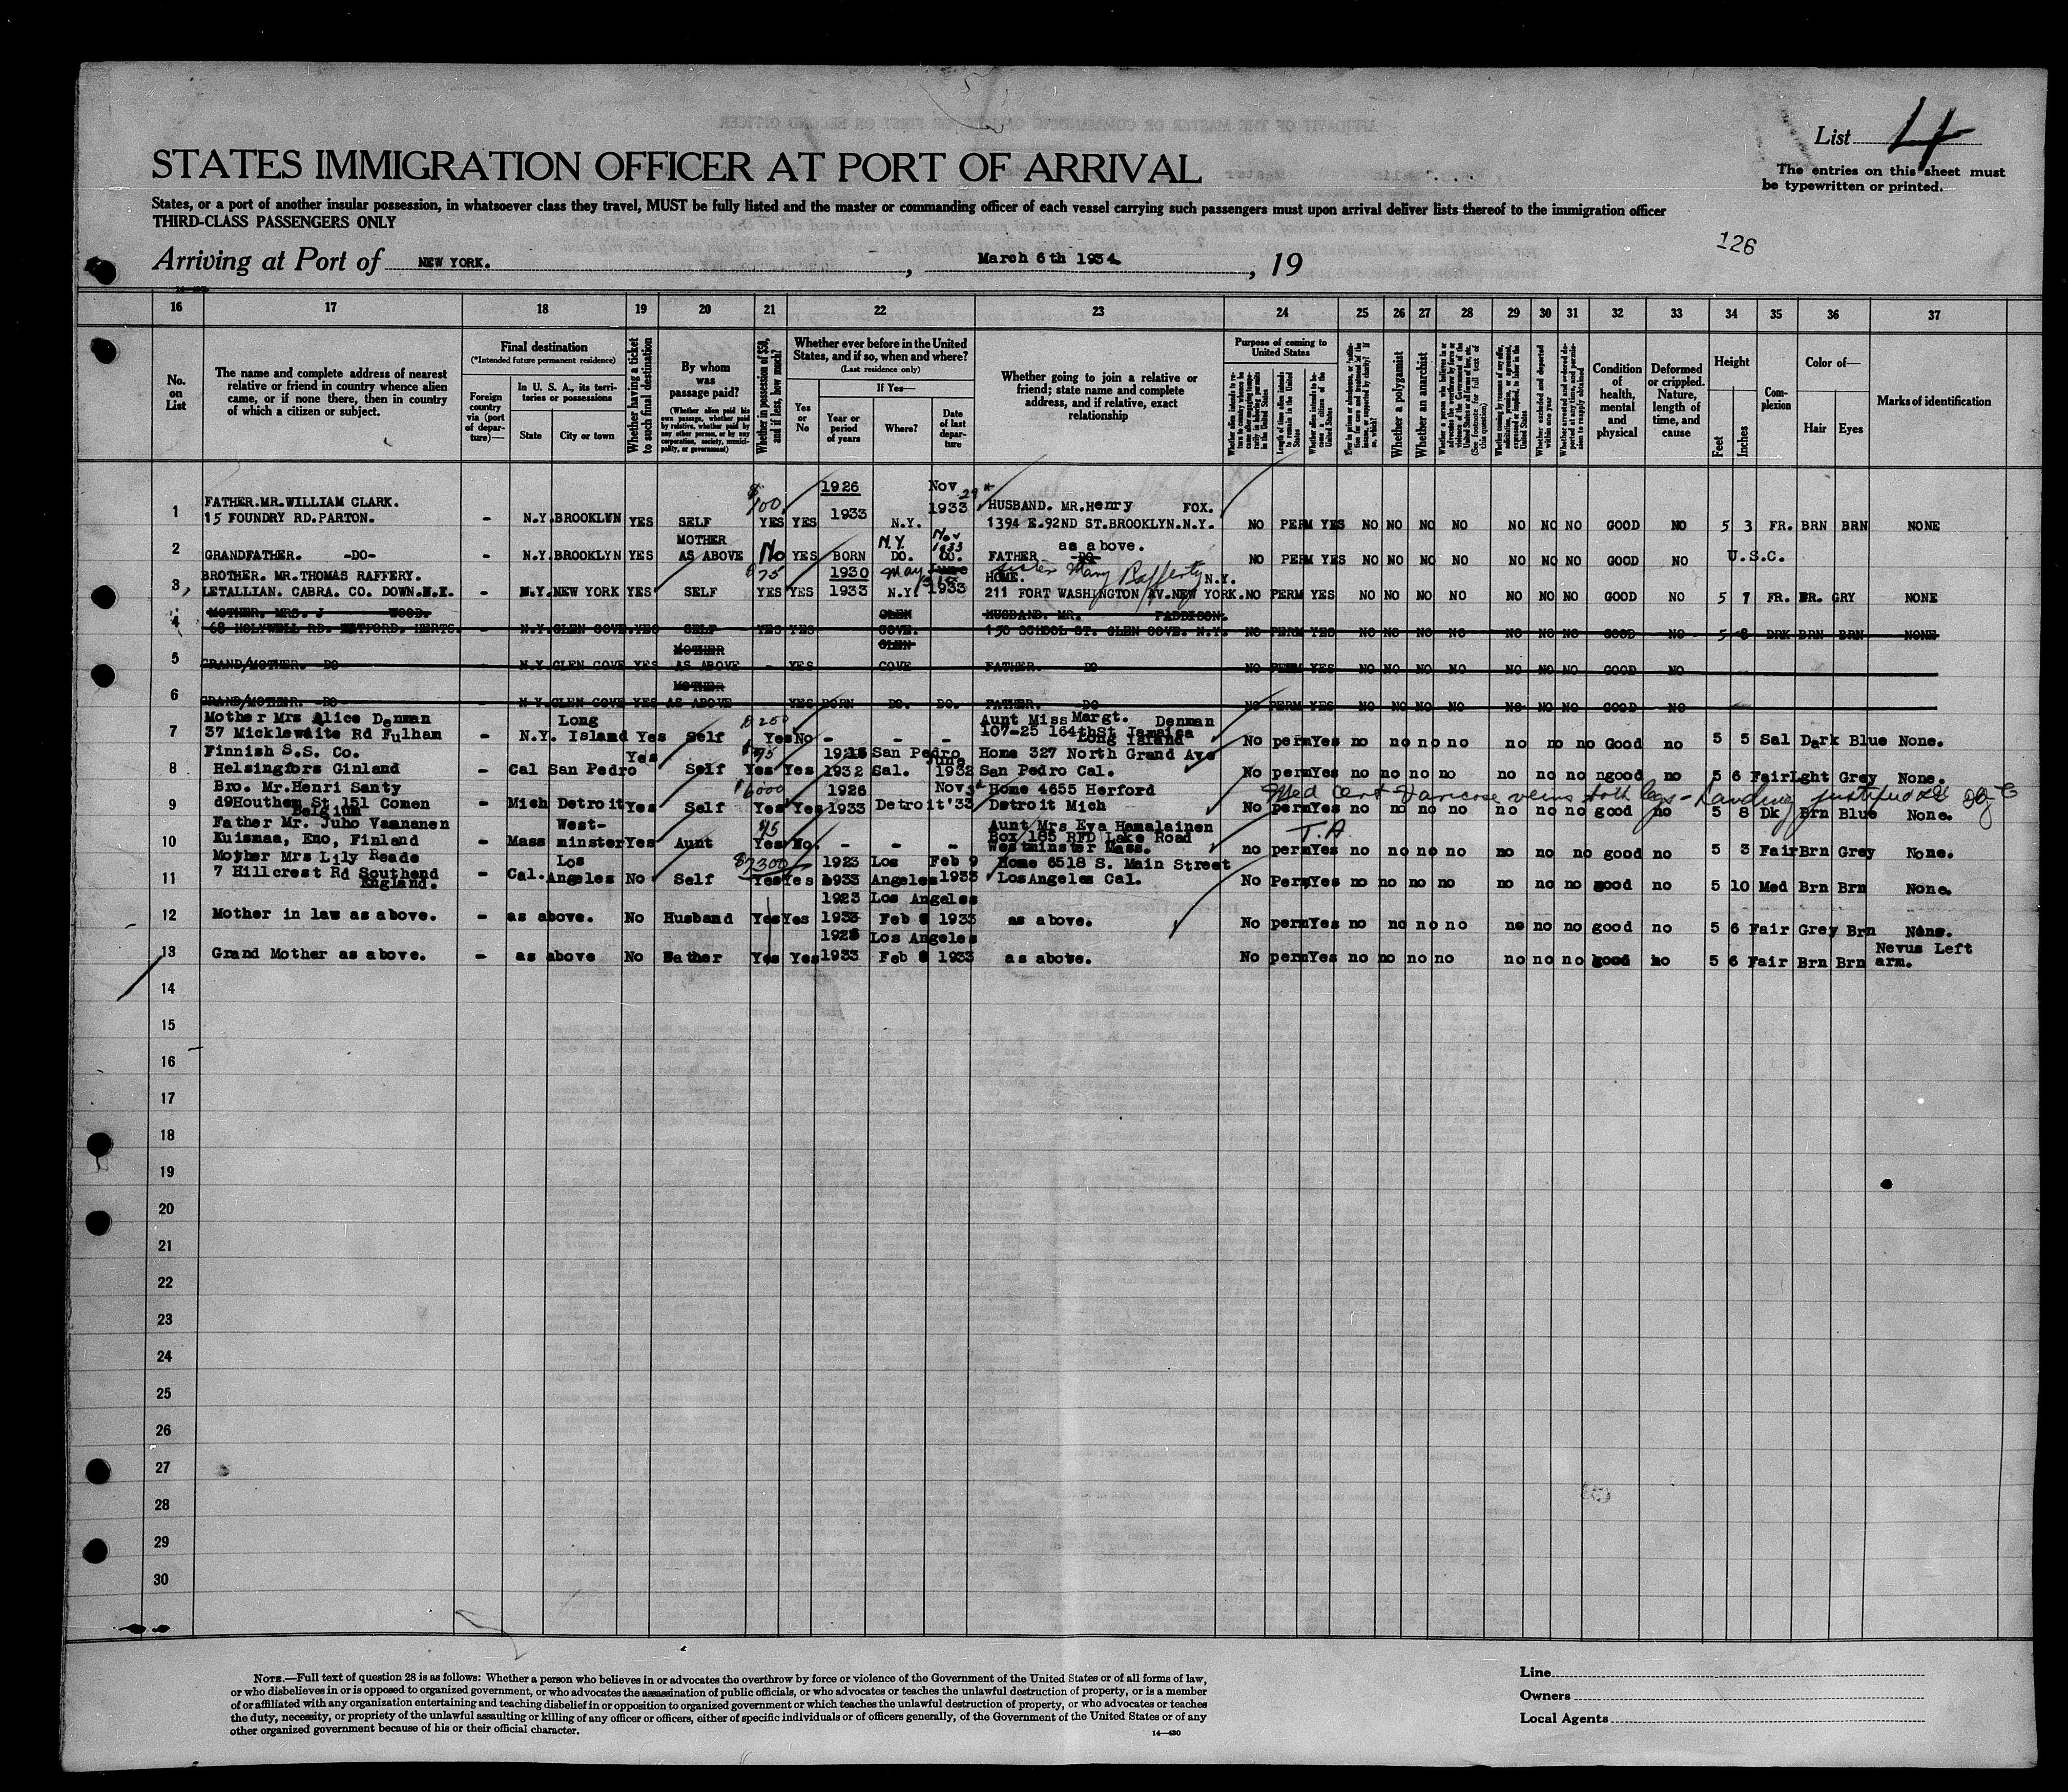 List 4
STATES IMMIGRATION OFFICER AT PORT OF ARRIVAL
The entries on this sheet must
be typewritten or printed.
States, or a port of another insular possession, in whatsoever class they travel, MUST be fully listed and the master or commanding officer of each vessel carrying such passengers must upon arrival deliver lists thereof to the immigration officer
THIRD-CLASS PASSENGERS ONLY
126
Arriving at Port of NEW YORK. , March 6th 1934. , 19
16 17 18 19 20 21 22 23 24 25 26 27 28 29 30 31 32 33 34 35 36 37
No. on List
The name and complete address of nearest relative or friend in country whence alien came, or if none there, then in country of which a citizen or subject.
Final destination
(*Intended future permanent residence)
Foreign country via (port of departure)—
In U. S. A., its territories or possessions
State
City or town
Whether having a ticket to such final destination
By whom was passage paid?
(Whether alien paid his own passage, whether paid by relative, whether paid by any other person, or by any corporation, society, municipality, or government)
Whether in possession of $50, and if less, how much?
Whether ever before in the United States, and if so, when and where?
(Last residence only)
Yes or No
If Yes—
Year or period of years
Where?
Date of last departure
Whether going to join a relative or friend; state name and complete address, and if relative, exact relationship
Purpose of coming to United States
Whether a polygamist
Whether an anarchist
Condition of health, mental and physical
Deformed or crippled. Nature, length of time, and cause
Height
Feet
Inches
Complexion
Color of—
Hair
Eyes
Marks of identification
1 FATHER.MR.WILLIAM CLARK. $100 1926 Nov 29 HUSBAND. MR.Henry FOX.
15 FOUNDRY RD.PARTON. - N.Y. BROOKLYN YES SELF YES YES 1933 N.Y. 1933 1394 E.92ND ST.BROOKLYN.N.Y. NO PERM YES NO NO NO NO NO NO NO GOOD NO 5 3 FR. BRN BRN NONE
2 MOTHER N.Y. Nov 1933 as above.
GRANDFATHER. -DO- - N.Y. BROOKLYN YES AS ABOVE No YES BORN DO. DO. FATHER -DO- NO PERM YES NO NO NO NO NO NO NO GOOD NO U.S.C.
3 BROTHER. MR.THOMAS RAFFERY. $75 1930 May June HOME. sister Mary Rafferty N.Y.
LETALLIAN. CABRA. CO. DOWN.N.I. - N.Y. NEW YORK YES SELF YES YES 1933 N.Y. 1933 211 FORT WASHINGTON AV.NEW YORK. NO PERM YES NO NO NO NO NO NO NO GOOD NO 5 7 FR. BR. GRY NONE
4 MOTHER. MRS. J WOOD. GLEN HUSBAND. MR. PADDISON.
68 HOLYWELL RD. WATFORD. HERTS. - N.Y. GLEN COVE. YES SELF YES YES COVE. SCHOOL ST. GLEN COVE. N.Y. NO PERM YES NO NO NO NO NO NO NO GOOD NO 5 8 DRK BRN BRN NONE
5 MOTHER GLEN
GRAND/MOTHER. DO - N.Y. GLEN COVE YES AS ABOVE - YES COVE FATHER. DO NO PERM YES NO NO NO NO NO NO NO GOOD NO
6 MOTHER
GRAND/MOTHER. -DO- - N.Y. GLEN COVE YES AS ABOVE YES BORN DO. DO. FATHER. DO NO PERM YES NO NO NO NO NO NO NO GOOD NO
7 Mother Mrs Alice Denman Long $250 Aunt Miss Margt. Denman
37 Micklewaite Rd Fulham - N.Y. Island Yes Self Yes No - - - 107-25 164thSt Jamaica Long Island No perm Yes no no no no no no no Good no 5 5 Sal Dark Blue None.
8 Finnish S.S. Co. Yes $75 San Pedro June Home 327 North Grand Ave
Helsingfors Ginland - Cal San Pedro Self Yes Yes 1932 Sal. 1932 San Pedro Cal. No perm Yes no no no no no no no ngood no 5 6 Fair Lght Grey None.
9 Bro. Mr.Henri Santy 1926 Nov Home 4655 Herford Med Cert Varicose veins both legs - Landing justified
d9Houthem St 151 Comen Belgium - Mich Detroit Yes Self Yes Yes 1933 Detroit '33 Detroit Mich No perm Yes no no no no no no no good no 5 8 Dk Brn Blue None.
10 Father Mr. Juho Vaananen West- $75 Aunt Mrs Eva Hamalainen T.A.
Kuismaa, Eno, Finland - Mass minster Yes Aunt Yes No. - - - Box 185 RFD Lake Road Westminster Mass. no perm Yes no no no no no no no good no 5 3 Fair Brn Grey None.
11 Moyher Mrs Lily Reade Los $7300 1923 Los Feb 9 Home 6518 S. Main Street
7 Hillcrest Rd Southend England. - Cal. Angeles No Self Yes Yes 1933 Angeles 1933 LosAngeles Cal. No Perm Yes no no no no no no no good no 5 10 Med Brn Brn None.
12 1923 Los Angeles
Mother in law as above. - as above. No Husband Yes Yes 1933 Feb 1933 as above. No perm Yes no no no no no no no good no 5 6 Fair Grey Brn None.
13 1923 Los Angeles Nevus Left
Grand Mother as above. - as above No Father Yes Yes 1933 Feb 1933 as above. No perm Yes no no no no no no no good no 5 6 Fair Brn Brn arm.
14
15
16
17
18
19
20
21
22
23
24
25
26
27
28
29
30
NOTE.—Full text of question 28 is as follows: Whether a person who believes in or advocates the overthrow by force or violence of the Government of the United States or of all forms of law,
or who disbelieves in or is opposed to organized government, or who advocates the assassination of public officials, or who advocates or teaches the unlawful destruction of property, or is a member
of or affiliated with any organization entertaining and teaching disbelief in or opposition to organized government or which teaches the unlawful destruction of property, or who advocates or teaches
the duty, necessity, or propriety of the unlawful assaulting or killing of any officer or officers, either of specific individuals or of officers generally, of the Government of the United States or of any
other organized government because of his or their official character.
14—430
Line
Owners
Local Agents